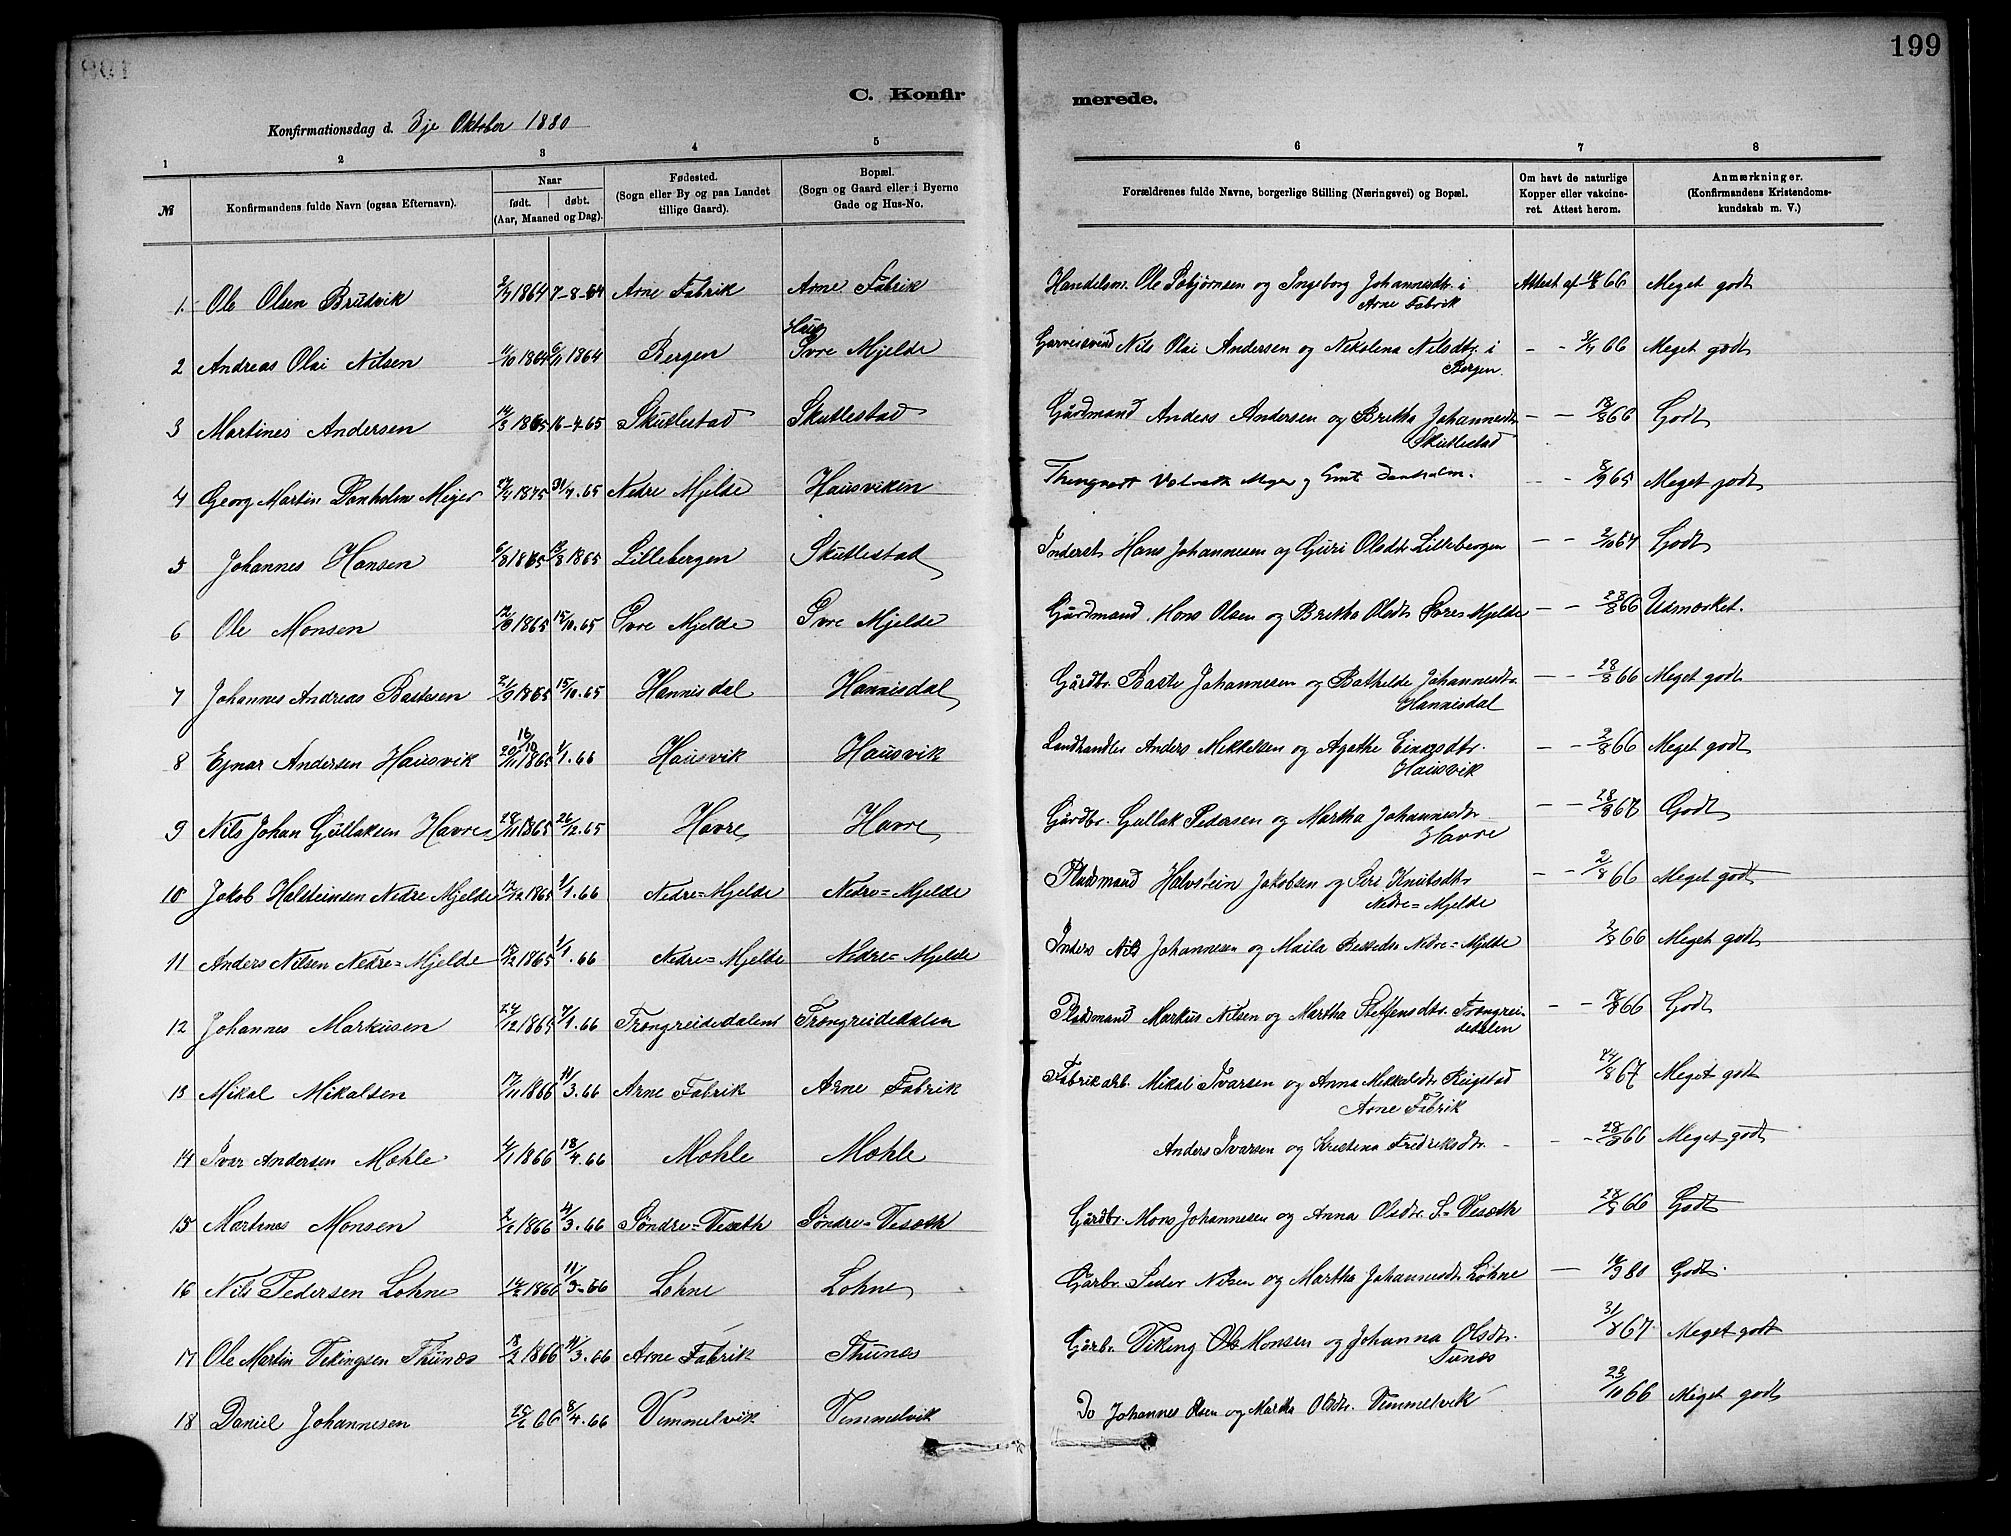 199
C. Konfirmerede.
Konfirmationsdag d. 3je Oktober 1880
1 2 3 4 5 6 7 8
№ Konfirmandens fulde Navn (ogsaa Efternavn). Naar født. døbt. (Aar, Maaned og Dag). Fødested. (Sogn eller By og paa Landet tillige Gaard). Bopæl. (Sogn og Gaard eller i Byerne Gade og Hus-No. Forældrenes fulde Navne, borgerlige Stilling (Næringsvei) og Bopæl. Om havt de naturlige Kopper eller vakcineret. Attest herom. Anmærkninger. (Konfirmandens Kristendomskundskab m. V.)
1. Ole Olsen Brudvik 1864 7-8-64 Arne Fabrik Arne Fabrik Handelsm. Ole Asbjørnsen og Ingeborg Johannesdtr. i Attest af 66 Meget godt
Arne Fabrik
2 Andreas Olai Nilsen 1864 1864 Bergen Øvre Mjelde Nils Olai Andersen og Nikolena Nilsdtr. i - - 66 Meget godt
Bergen.
3 Martines Andersen 1865 16-4-65 Skutlestad Skutlestad Gårdmand Anders Andersen og Britha Johannesdtr - - 66 Godt
Skutlestad
4 Georg Martin Danholm Meyer 17/4 1875 4.65 Nedre Mjelde Hausviken Meyer og - - 8/9 65 Meget godt
5 Johannes Hansen 1865 1865 Lillebergen Skutlestad Inderst Hans Johannesen og Guri Olsdtr Lillebergen - - 2/10 64 Godt
6 Ole Monsen 1865 15/10.65 Øvre Mjelde Øvre Mjelde Gårdmand Mons Olsen og Britha Olsdtr Øvre Mjelde - - 28/8 66 Udmærket.
7 Johannes Andreas Bastesen 21/9 1865 15/10.65 Hannisdal Hannisdal Gårdbr. Baste Johannesen og Bathilde Johannesdtr. - - 28/8 66 Meget godt
Hannisdal
8 Ejnar Andersen Hausvik 16/10 20/11 1865 1/1.66 Hausvik Hausvik Landhandler Anders Mikkelsen og Agathe - - 2/8 66 Meget godt
Hausvik
9 Nils Johan Gullaksen Havre 1865 26/12.65 Havre Havre Gårdbr. Gullak Pedersen og Martha Johannesdtr. - - 67 Godt
Havre
10 Jakob Halsteinsen Nedre Mjelde 12/12 1865 1/1.66 Nedre=Mjelde Nedre=Mjelde Pladsmand Halvstein Jakobsen og Siri Knutsdtr - - 2/8 66 Meget godt
Nedre=Mjelde
11 Anders Nilsen Nedre=Mjelde 1865 1/1.66 Nedre=Mjelde Nedre=Mjelde Inders Nils Johannesen og Nedre=Mjelde 2/8 66 Meget godt
12 Johannes Markusen 24/12 1865 7/1.66 Trongreidedalen Trongreidedalen Pladsmand Markus Nilsen og Martha Steffensdtr. Trongrei- - - 66 Godt
dedalen
13 Mikal Mikalsen 1866 11/3.66 Arne Fabrik Arne Fabrik Fabrikarb. Mikal Ivarsen og Anna Mikkalsdtr Reigstad 24/8 67 Meget godt
Arne Fabrik
14 Ivar Andersen Mohle 1866 18/4.66 Mohle Mohle Anders Ivarsen og Kristina Fredriksdtr. - - - 66 Meget godt
15 Martines Monsen 1866 3.66 Søndre=Veseth Søndre=Veseth Gårdbr. Mons Johannesen og Anna Olsdtr. S=Veseth 66 Godt
16 Nils Pedersen Lohne 1866 11/3-66 Lohne Lohne Garbr. Peder Nilsen og Martha Johannesdtr Løhne - 80 Godt.
17 Ole Martin Vikingsen Thunes 18/2 1866 11/3.66 Arne Fabrik Thunes Gårb. Viking Monsen og Johanna Olsdtr. 31/8 67. Meget godt
Tunes
18 Daniel Johannesen 25/2 66 8/4.66 Vemmelvik Vemmelvik Do Johannes Olsen og Martha Olsdtr. Vemmelvik 23/10 66 Meget godt